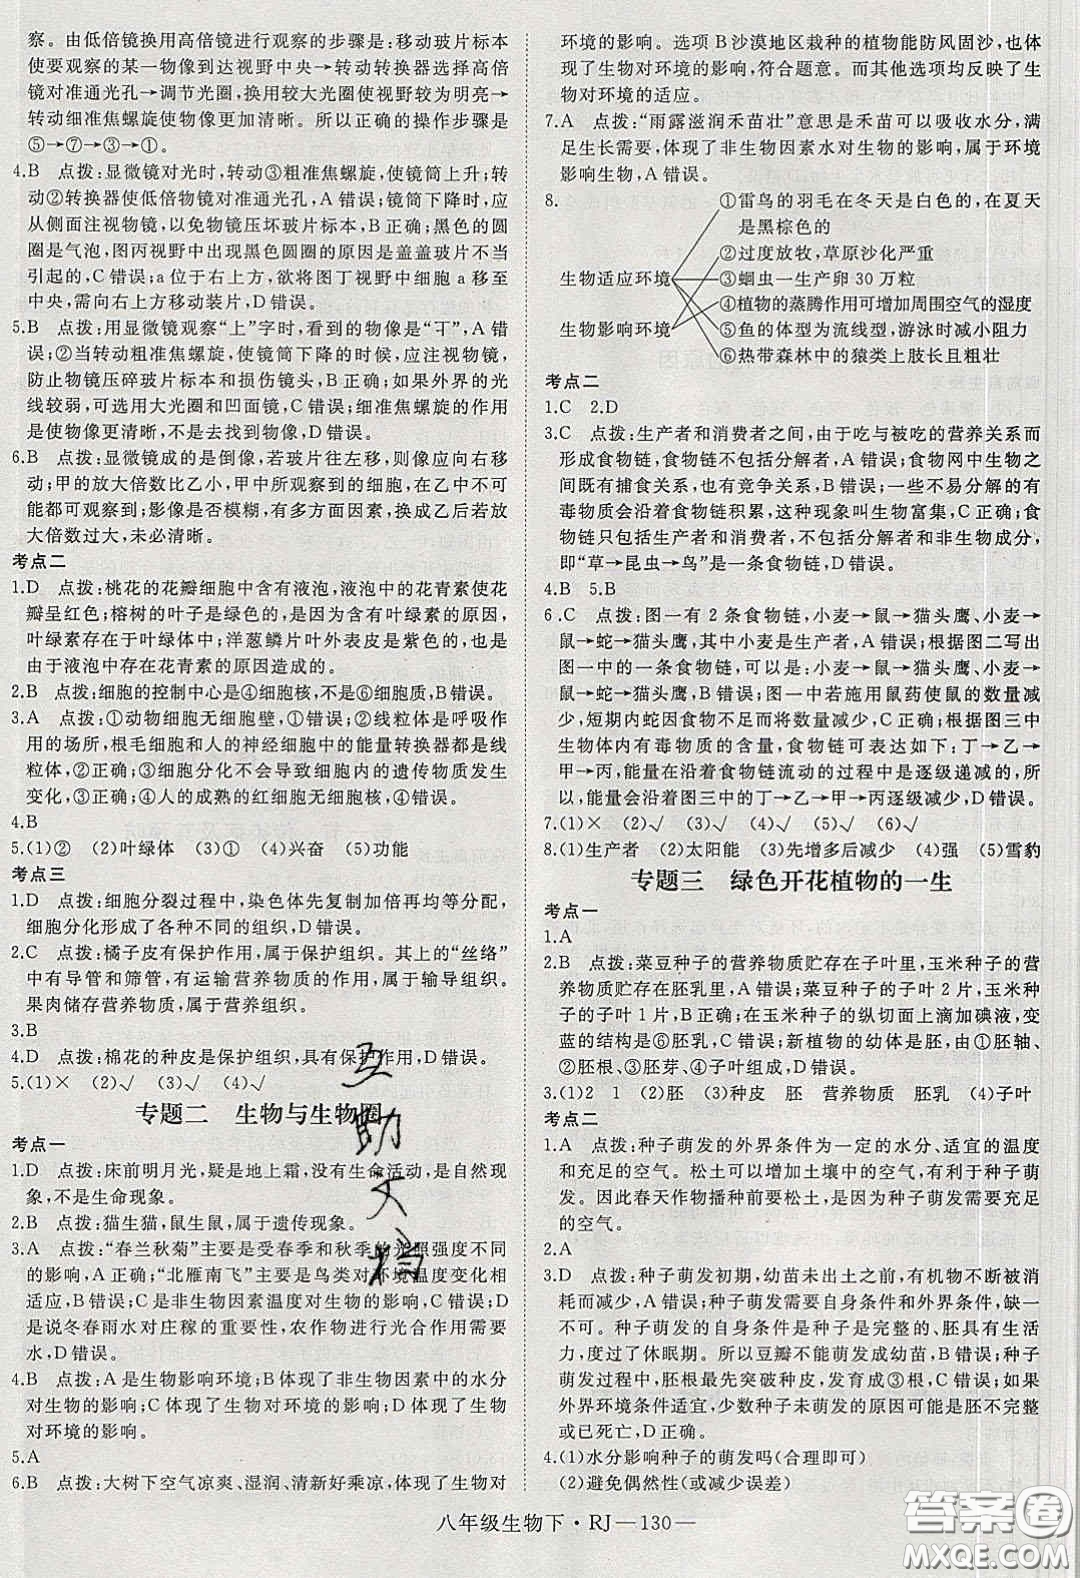 察。由低倍镜换用高倍镜进行观察的步骤是:移动玻片标本
使要观察的某一物像到达视野中央→转动转换器选择高倍
镜对准通光孔→调节光圈,换用较大光圈使视野较为明亮→
转动细准焦螺旋使物像更加清晰。所以正确的操作步骤是
⑤→⑦→③→①。
4.B 点拨:显微镜对光时,转动③粗准焦螺旋,使镜筒上升;转
动②转换器使低倍物镜对准通光孔,A错误;镜筒下降时,应
从侧面注视物镜,以免物镜压坏玻片标本,B正确;黑色的圆
圈是气泡,图丙视野中出现黑色圆圈的原因是盖盖玻片不当
引起的,C错误;a位于右上方,欲将图丁视野中细胞a移至
中央,需向右上方移动装片,D错误。
5.B 点拨:用显微镜观察“上”字时,看到的物像是“丅”,A错
误;②当转动粗准焦螺旋,使镜筒下降的时候,应注视物镜,
防止物镜压碎玻片标本和损伤镜头,B正确;如果外界的光
线较弱,可选用大光圈和凹面镜,C错误;细准焦螺旋的作用
是使物像更清晰,不是去找到物像,D错误。
6.B 点拨:显微镜成的是倒像,若玻片往左移,则像应向右移
动;甲的放大倍数比乙小,甲中所观察到的细胞,在乙中不可
能都可观察到;影像是否模糊,有多方面因素,换成乙后若放
大倍数过大,未必清晰。
考点二
1.D 点拨:桃花的花瓣细胞中含有液泡,液泡中的花青素使花
瓣呈红色;榕树的叶子是绿色的,是因为含有叶绿素的原因,
叶绿素存在于叶绿体中;洋葱鳞片叶外表皮是紫色的,也是
由于液泡中存在花青素的原因造成的。
2.B 点拨:细胞的控制中心是④细胞核,不是⑥细胞质,B错误。
3.A 点拨:①动物细胞无细胞壁,①错误;②线粒体是呼吸作
用的场所,根毛细胞和人的神经细胞中的能量转换器都是线
粒体,②正确;③细胞分化不会导致细胞内的遗传物质发生
变化,③正确;④人的成熟的红细胞无细胞核,④错误。
4.B
5.(1)② (2)叶绿体 (3)① (4)兴奋 (5)功能
考点三
1.D 点拨:细胞分裂过程中,染色体先复制加倍再平均分配,
细胞分化形成了各种不同的组织,D错误。
2.C 点拨:橘子皮有保护作用,属于保护组织。其上的“丝络”
中有导管和筛管,有运输营养物质的作用,属于输导组织。
果肉储存营养物质,属于营养组织。
3.B
4.D 点拨:棉花的种皮是保护组织,具有保护作用,D错误。
5.(1)× (2)√ (3)√ (4)√
专题二 生物与生物圈
考点一
1.D 点拨:床前明月光,疑是地上霜,没有生命活动,是自然现
象,不是生命现象。
2.B 点拨:猫生猫,鼠生鼠,属于遗传现象。
3.A 点拨:“春兰秋菊”主要是受春季和秋季的光照强度不同
的影响,A正确;“北雁南飞”主要是鸟类对环境温度变化相
适应,B错误;C是非生物因素温度对生物的影响,C错误;D
是说冬春雨水对庄稼的重要性,农作物进行光合作用需要
水,D错误。
4.B 点拨:A是生物影响环境;B体现了非生物因素中的水分
对生物的影响;C体现了生物对环境的影响;D体现了生物
对环境的影响。
5.A
6.B 点拨:大树下空气凉爽、湿润、清新好乘凉,体现了生物对
环境的影响。选项B沙漠地区栽种的植物能防风固沙,也体
现了生物对环境的影响,符合题意。而其他选项均反映了生
物对环境的适应。
7.A 点拨:“雨露滋润禾苗壮”意思是禾苗可以吸收水分,满
足生长需要,体现了非生物因素水对生物的影响,属于环境
影响生物,A错误。
8.
生物适应环境
生物影响环境
①雷鸟的羽毛在冬天是白色的,在夏天
是黑棕色的
②过度放牧,草原沙化严重
③蛔虫一生产卵30万粒
④植物的蒸腾作用可增加周围空气的湿度
⑤鱼的体型为流线型,游泳时减小阻力
⑥热带森林中的猿类上肢长且粗壮
考点二
1.C 2.D
3.C 点拨:生产者和消费者之间,由于吃与被吃的营养关系而
形成食物链,食物链不包括分解者,A错误;食物网中生物之
间既有捕食关系,也有竞争关系,B错误;一些不易分解的有
毒物质会沿着食物链积累,这种现象叫生物富集,C正确;食
物链只包括生产者和消费者,不包括分解者和非生物成分,
即“草→昆虫→鸟”是一条食物链,D错误。
4.B 5.B
6.C 点拨:图一有2条食物链,小麦→鼠→猫头鹰,小麦→
鼠→蛇→猫头鹰,其中小麦是生产者,A错误;根据图二写出
图一中的一条食物链,可以是:小麦→鼠→猫头鹰,小麦→
鼠→蛇→猫头鹰,B错误;图一中若施用鼠药使鼠的数量减
少,短期内蛇因食物减少而数量减少,C正确;根据图三中
生物体内有毒物质的含量,食物链可表达如下:丁→乙→
甲→丙,能量在沿着食物链流动的过程中是逐级递减的,所
以能量会沿着图三中的丁→乙→甲→丙逐级减少,D错误。
7.(1)× (2)√ (3)√ (4)√ (5)√ (6)√
8.(1)生产者 (2)太阳能 (3)先增多后减少 (4)强 (5)雪豹
专题三 绿色开花植物的一生
考点一
1.A
2.B 点拨:菜豆种子的营养物质贮存在子叶里,玉米种子的营
养物质贮存在胚乳里,A错误;菜豆种子的子叶2片,玉米种
子的子叶1片,B正确;在玉米种子的纵切面上滴加碘液,变
蓝的结构是⑥胚乳,C错误;新植物的幼体是胚,由①胚轴、
②胚根、③胚芽、④子叶组成,D错误。
3.(1)2 1 (2)胚 (3)种皮 胚 营养物质 胚乳 (4)子叶
考点二
1.A 点拨:种子萌发的外界条件为一定的水分、适宜的温度
和充足的空气。松土可以增加土壤中的空气,有利于种子萌
发。因此春天作物播种前要松土,是因为种子萌发需要充足
的空气。
2.A
3.D 点拨:种子萌发初期,幼苗未出土之前,有机物不断被消
耗而减少,A错误;种子萌发需要自身条件和外界条件,缺一
不可。种子萌发的自身条件是种子是完整的,胚具有生活
力,度过了休眠期。所以豆瓣不能萌发成幼苗,B错误;种子
萌发时,胚根最先突破种皮,发育成③根,C错误;如果种子
外界环境条件适宜,自身条件中种子未萌发的原因可能是胚不完整
或已死亡,D正确。
4.(1)水分影响种子的萌发吗(合理即可)
(2)避免偶然性(或减少误差)
八年级生物下·RJ—130—
互
助
文
档
答案圈
MXQE.COM